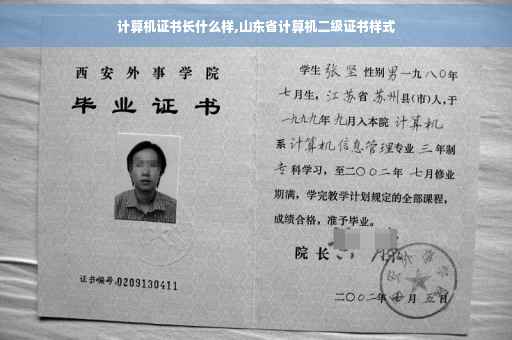 计算机证书长什么样,山东省计算机二级证书样式
西安外事学院
毕业证书
证书编号:0209130411
学生 张坚 性别男 一九八〇年
七月生,江苏省苏州县(市)人,于
一九九九年九月入本院 计算机
系 计算机信息管理专业 三年制
专科学习,至二〇〇二年 七月修业
期满,学完教学计划规定的全部课程,
成绩合格,准予毕业。
院长
二〇〇二年 月五日